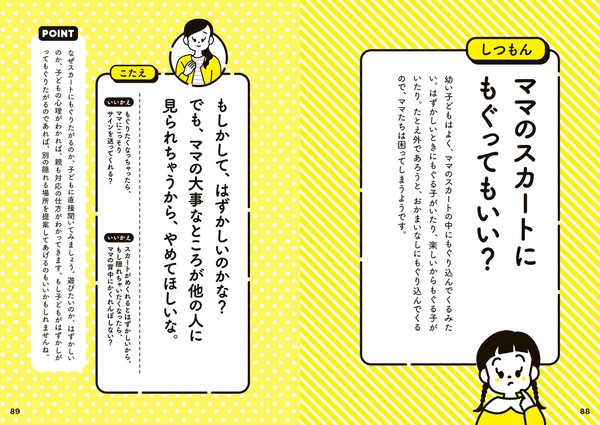 しつもん
ママのスカートに
もぐってもいい？
幼い子どもはよく、ママのスカートの中にもぐり込んでくるみた
い。はずかしいときにもぐる子がいたり、楽しいからもぐる子が
いたり。たとえ外であろうと、おかまいなしにもぐり込んでくる
ので、ママたちは困ってしまうようです。
88
こたえ
もしかして、はずかしいのかな？
でも、ママの大事なところが他の人に
見られちゃうから、やめてほしいな。
いいかえ
もぐりたくなっちゃったら、
ママにこっそり
サインを送ってくれる？
いいかえ
スカートがめくれるとはずかしいから、
もし隠れちゃいたくなったら、
ママの背中にかくれんぼしない？
POINT
なぜスカートにもぐりたがるのか、子どもに直接聞いてみましょう。遊びたいのか、はずかしい
のか、子どもの心理がわかれば、親も対応の仕方がわかってきます。もし子どもがはずかしが
ってもぐりたがるのであれば、別の隠れる場所を提案してあげるのもいいかもしれませんね。
89